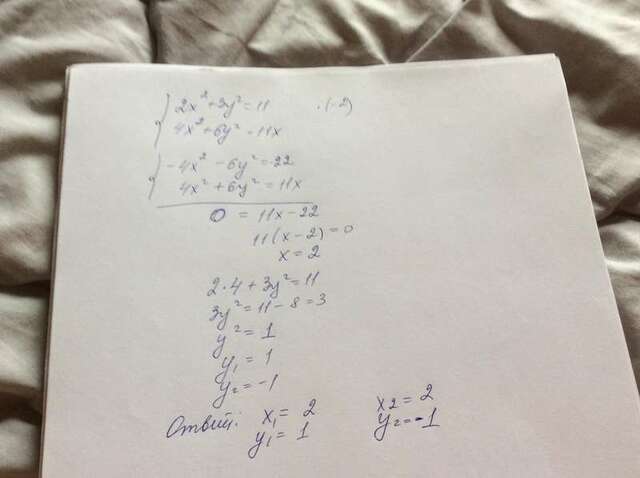 2x² + 3y² = 11 ·(-2)
4x² + 6y² = 11x
-4x² - 6y² = -22
4x² + 6y² = 11x
0 = 11x - 22
11(x - 2) = 0
x = 2
2·4 + 3y² = 11
3y² = 11 - 8 = 3
y² = 1
y₁ = 1
y₂ = -1
Ответ: x₁ = 2 x2 = 2
y₁ = 1 y₂ = -1